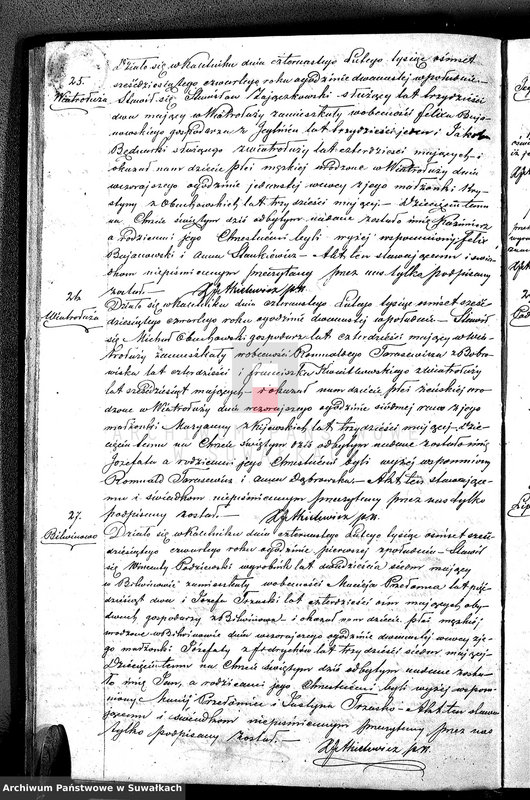 25.
Wiatrołuża
Działo się w Kaletniku dnia czternastego Lutego tysiąc ośmset
sześćdziesiątego czwartego roku o godzinie dwunastej w południe –
Stawił się Stanisław Zajączkowski służący lat trzydzieści
dwa mający w Wiatrołuży zamieszkały w obecności Felixa Buja-
nowskiego gospodarza z lat trzydzieści jeden i Jakób
służącego z Wiatrołuży lat czterdzieści mających – i
okazał nam dziecię płci męskiej urodzone w Wiatrołuży dnia
wczorajszego o godzinie jedenastej w nocy z jego małżonki Kry-
styny z Obuchowskich lat trzydzieści mającej – Dziecięciu temu
na Chrzcie świętym dziś odbytym nadane zostało imię Kazimierz
a rodzicami jego Chrzestnemi byli wyżej wspomniony Felix
Bujanowski i Anna Stankiewicz – Akt ten stawającemu i świa-
dkom niepiśmiennym przeczytany przez nas tylko podpisany
został. –
26.
Wiatrołuża
Działo się w Kaletniku dnia czternastego Lutego tysiąc ośmset sześć-
dziesiątego czwartego roku o godzinie dwunastej w południe – Stawił
się Michał Obuchowski gospodarz lat czterdzieści mający w Wia-
trołuży zamieszkały w obecności Romualda Tarasewicza z Bobro-
wiska lat czterdzieści i Franciszka z Wiatrołuży
lat sześćdziesiąt mających – i okazał nam dziecię płci żeńskiej uro-
dzone w Wiatrołuży dnia wczorajszego o godzinie siódmej rano z jego
małżonki Maryanny z lat trzydzieści mającej – Dzie-
cięciu temu na Chrzcie świętym dziś odbytym nadane zostało imię
Józefata a rodzicami jego Chrzestnemi byli wyżej wspomniony
Romuald Tarasewicz i Anna Dąbrowska – Akt ten stawające-
mu i świadkom niepiśmiennym przeczytany przez nas tylko
podpisany został. –
27.
Bilwinowo
Działo się w Kaletniku dnia czternastego Lutego tysiąc ośmset sześć-
dziesiątego czwartego roku o godzinie pierwszej z południa – Stawił
się Wincenty wyrobnik lat dwadzieścia siedm mający
w Bilwinowie zamieszkały w obecności Macieja lat pięć-
dziesiąt dwa i Józefa lat czterdzieści ośm mających oby-
dwóch gospodarzy z Bilwinowa i okazał nam dziecię płci męskiej
urodzone w Bilwinowie dnia wczorajszego o godzinie dwunastej w nocy z je-
go małżonki Józefaty z lat trzydzieści siedm mającej –
Dziecięciu temu na Chrzcie świętym dziś odbytym nadane zosta-
ło imię Jan, a rodzicami jego Chrzestnemi byli wyżej wspom-
niony Maciej i Justyna – Akt ten stawa-
jącemu i świadkom niepiśmiennym przeczytany przez nas
tylko podpisany został. –
Archiwum Państwowe w Suwałkach